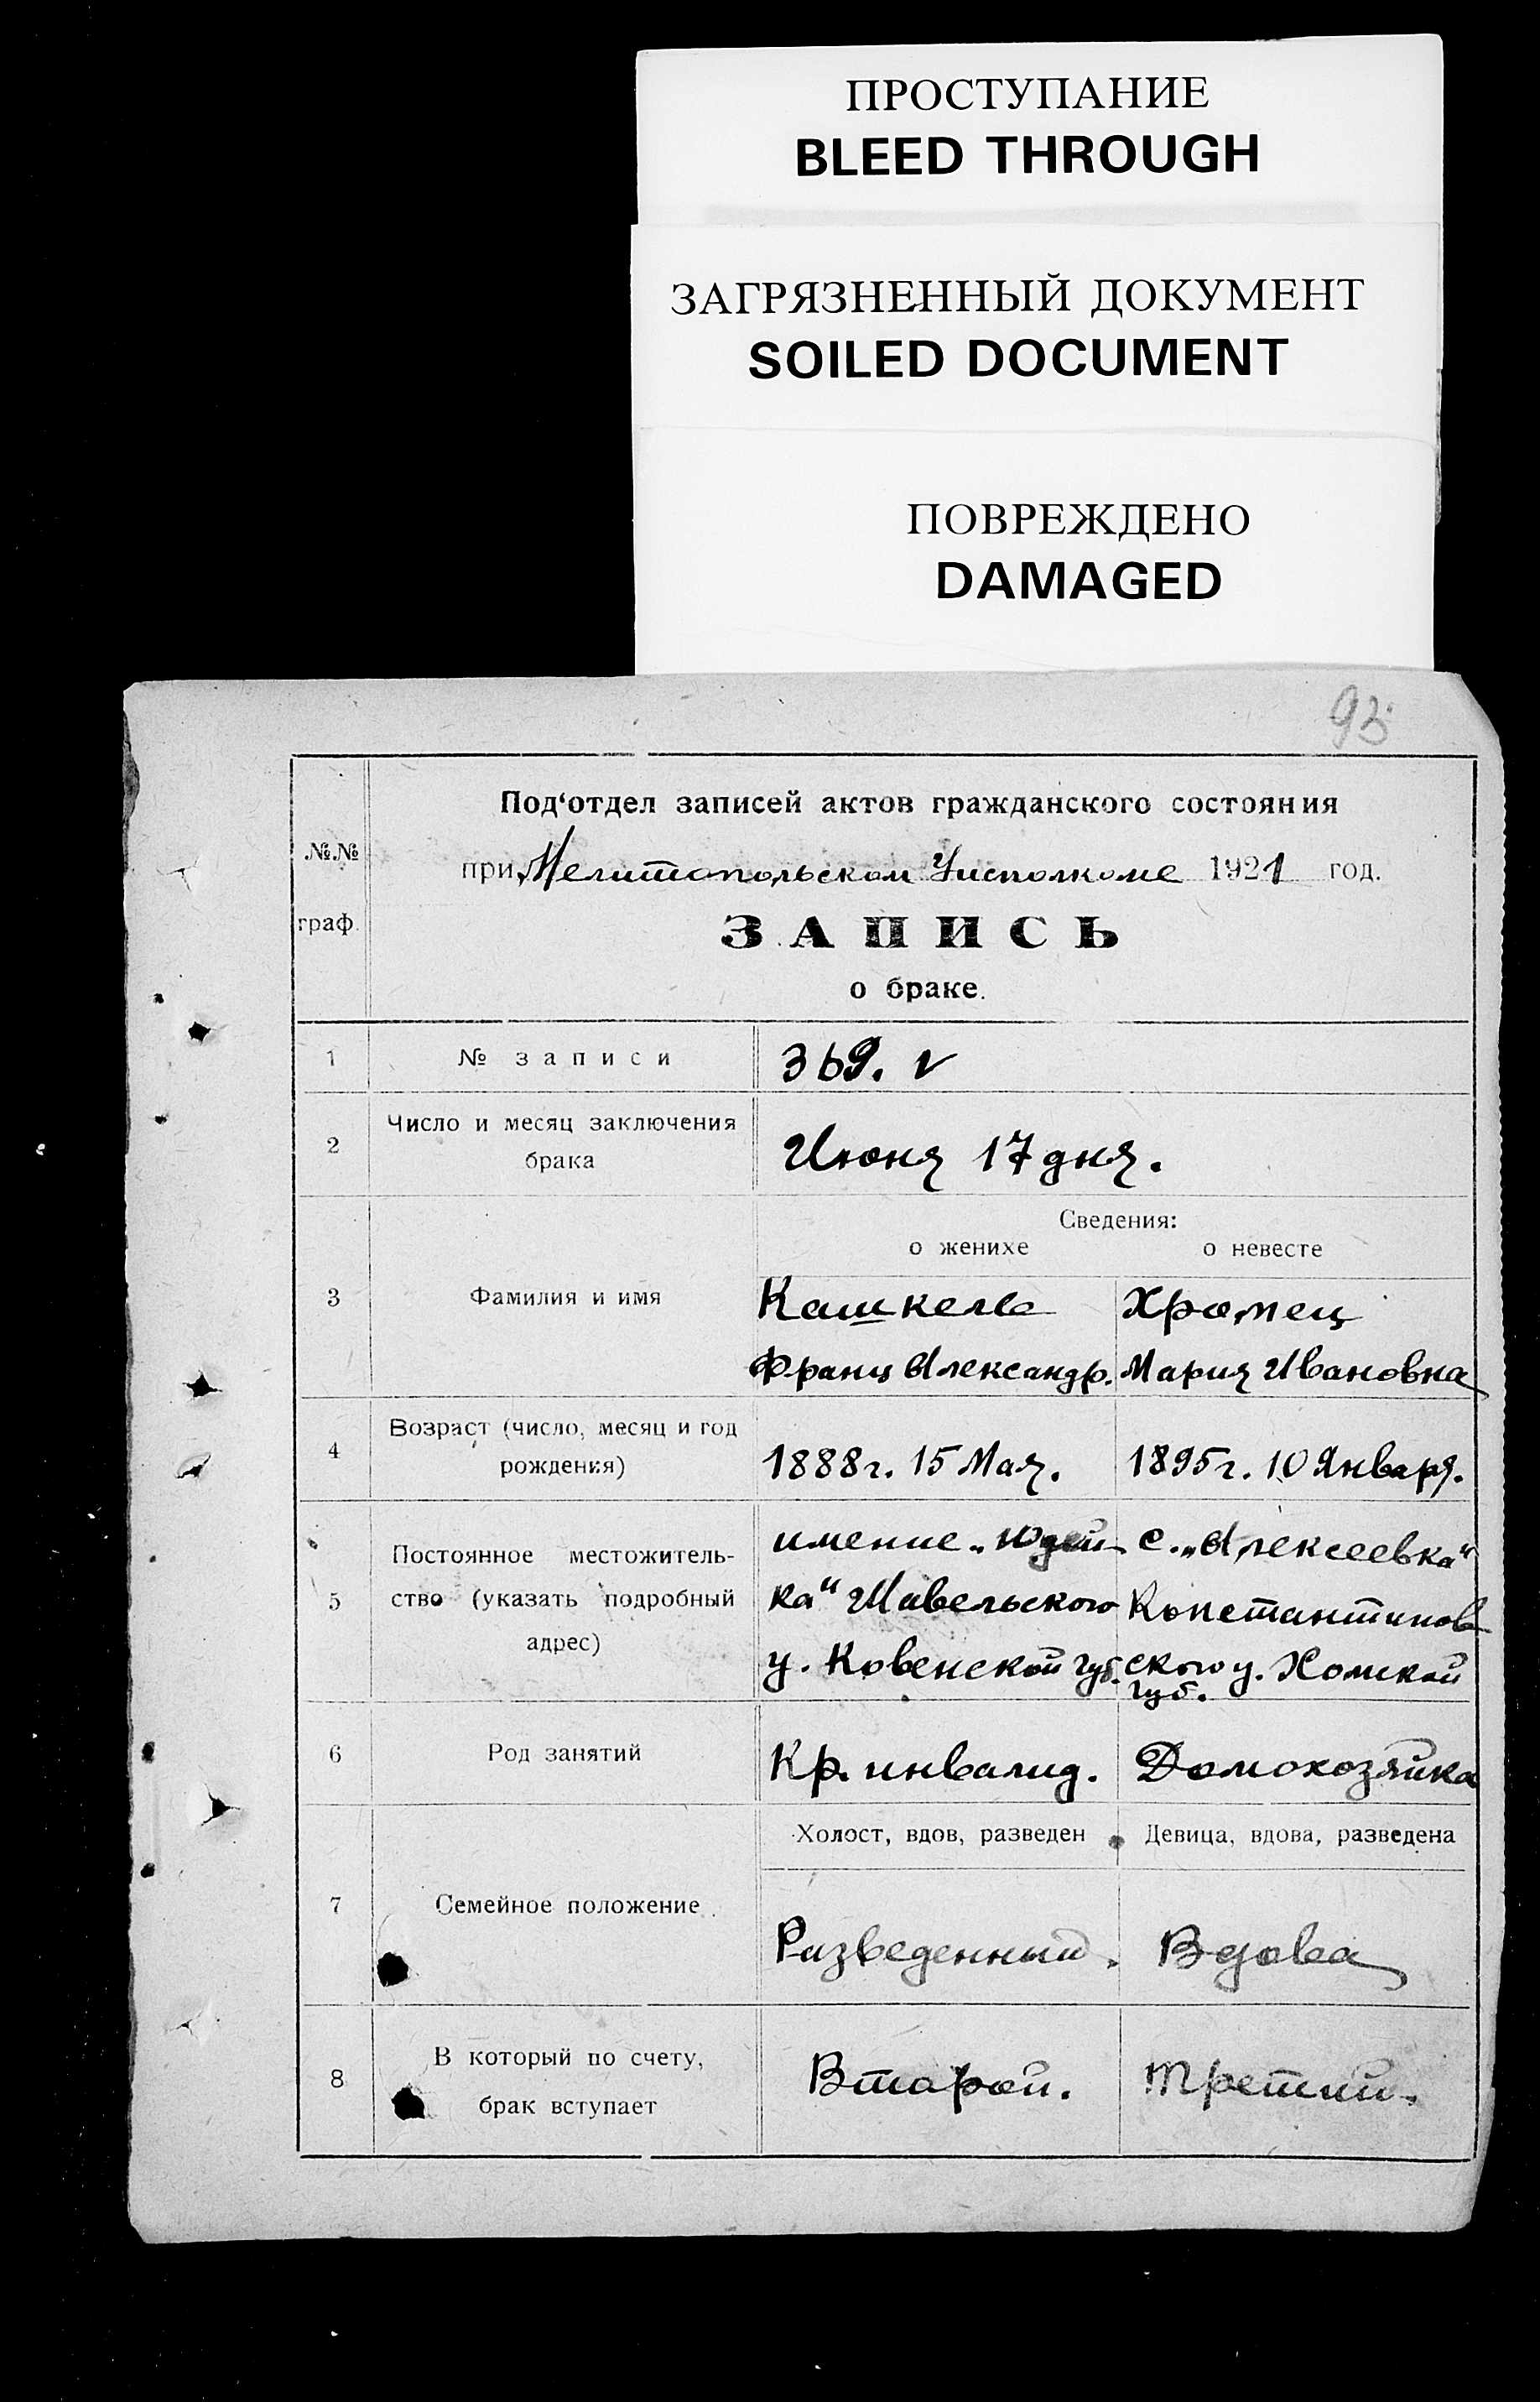 ПРОСТУПАНИЕ
BLEED THROUGH
ЗАГРЯЗНЕННЫЙ ДОКУМЕНТ
SOILED DOCUMENT
ПОВРЕЖДЕНО
DAMAGED
93
№.№
граф.
Под‘отдел записей актов гражданского состояния
при Мелитопольском Уисполкоме 1921 год.
ЗАПИСЬ
о браке.
1 № записи 369. v
2 Число и месяц заключения
брака
Июня 17 дня.
Сведения:
о женихе о невесте
3 Фамилия и имя
Кашкель Хромец
Франц Александр. Мария Ивановна
4 Возраст (число, месяц и год
рождения)
1888 г. 15 Мая. 1895 г. 10 Января.
5 Постоянное местожитель-
ство (указать подробный
адрес)
имение „Юдей-
ка“ Шавельского
у. Ковенской губ.
с. „Алексеевка“
Константинов
ского у. Хомской
губ.
6 Род занятий Кр. инвалид. Домохозяйка
Холост, вдов, разведен Девица, вдова, разведена
7 Семейное положение
Разведенный. Вдова
8 В который по счету,
брак вступает
Второй. Третий.